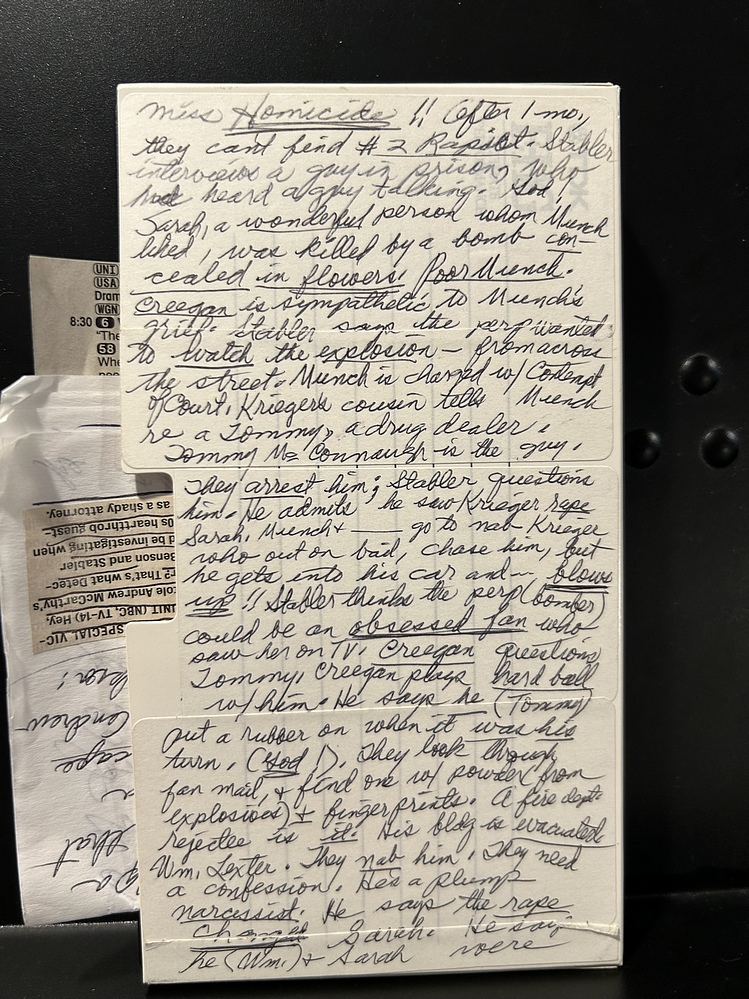 Miss Homicide !! (After 1 mo,
they cant find # 2 Rapist. Stabler
interviews a guy in prison, who
had heard a guy talking. God,
Sarah, a wonderful person whom Munch
liked, was killed by a bomb con-
cealed in flowers! Poor Munch.
Creegan is sympathetic to Munch's
grief. Stabler says the perp wanted
to watch the explosion – from across
the street. Munch is charged w/ Contempt
of Court. Krieger's cousin tells Munch
re a Tommy, a drug dealer.
Tommy Mc Connaugh is the guy.
They arrest him; Stabler questions
him. He admits he saw Krieger rape
Sarah. Munch + ____ go to nab Krieger
who out on bail, chase him, but
he gets into his car and — blows
up !! Stabler thinks the perp (bomber)
could be an obsessed fan who
saw her on TV. Creegan questions
Tommy. Creegan plays hard ball
w/ him. He says he (Tommy)
put a rubber on when it was his
turn. (God !). They look through
fan mail, + find one w/ powder (from
explosives) + fingerprints. A fire dept.
rejectee is it. His bldg is evacuated
Wm. Lexter. They nab him. They need
a confession. He's a plump
narcissist. He says the rape
changed Sarah. He said
he (Wm.) + Sarah were
UNI
USA
Dram
WGN
8:30 6
"The
58
Whe
SPECIAL VIC-
UNIT (NBC, TV-14) Hey,
cole Andrew McCarthy's
r? That's what Detec-
Benson and Stabler
d be investigating when
0s heartthrob guest-
as a shady attorney.
that
cape
Andrew